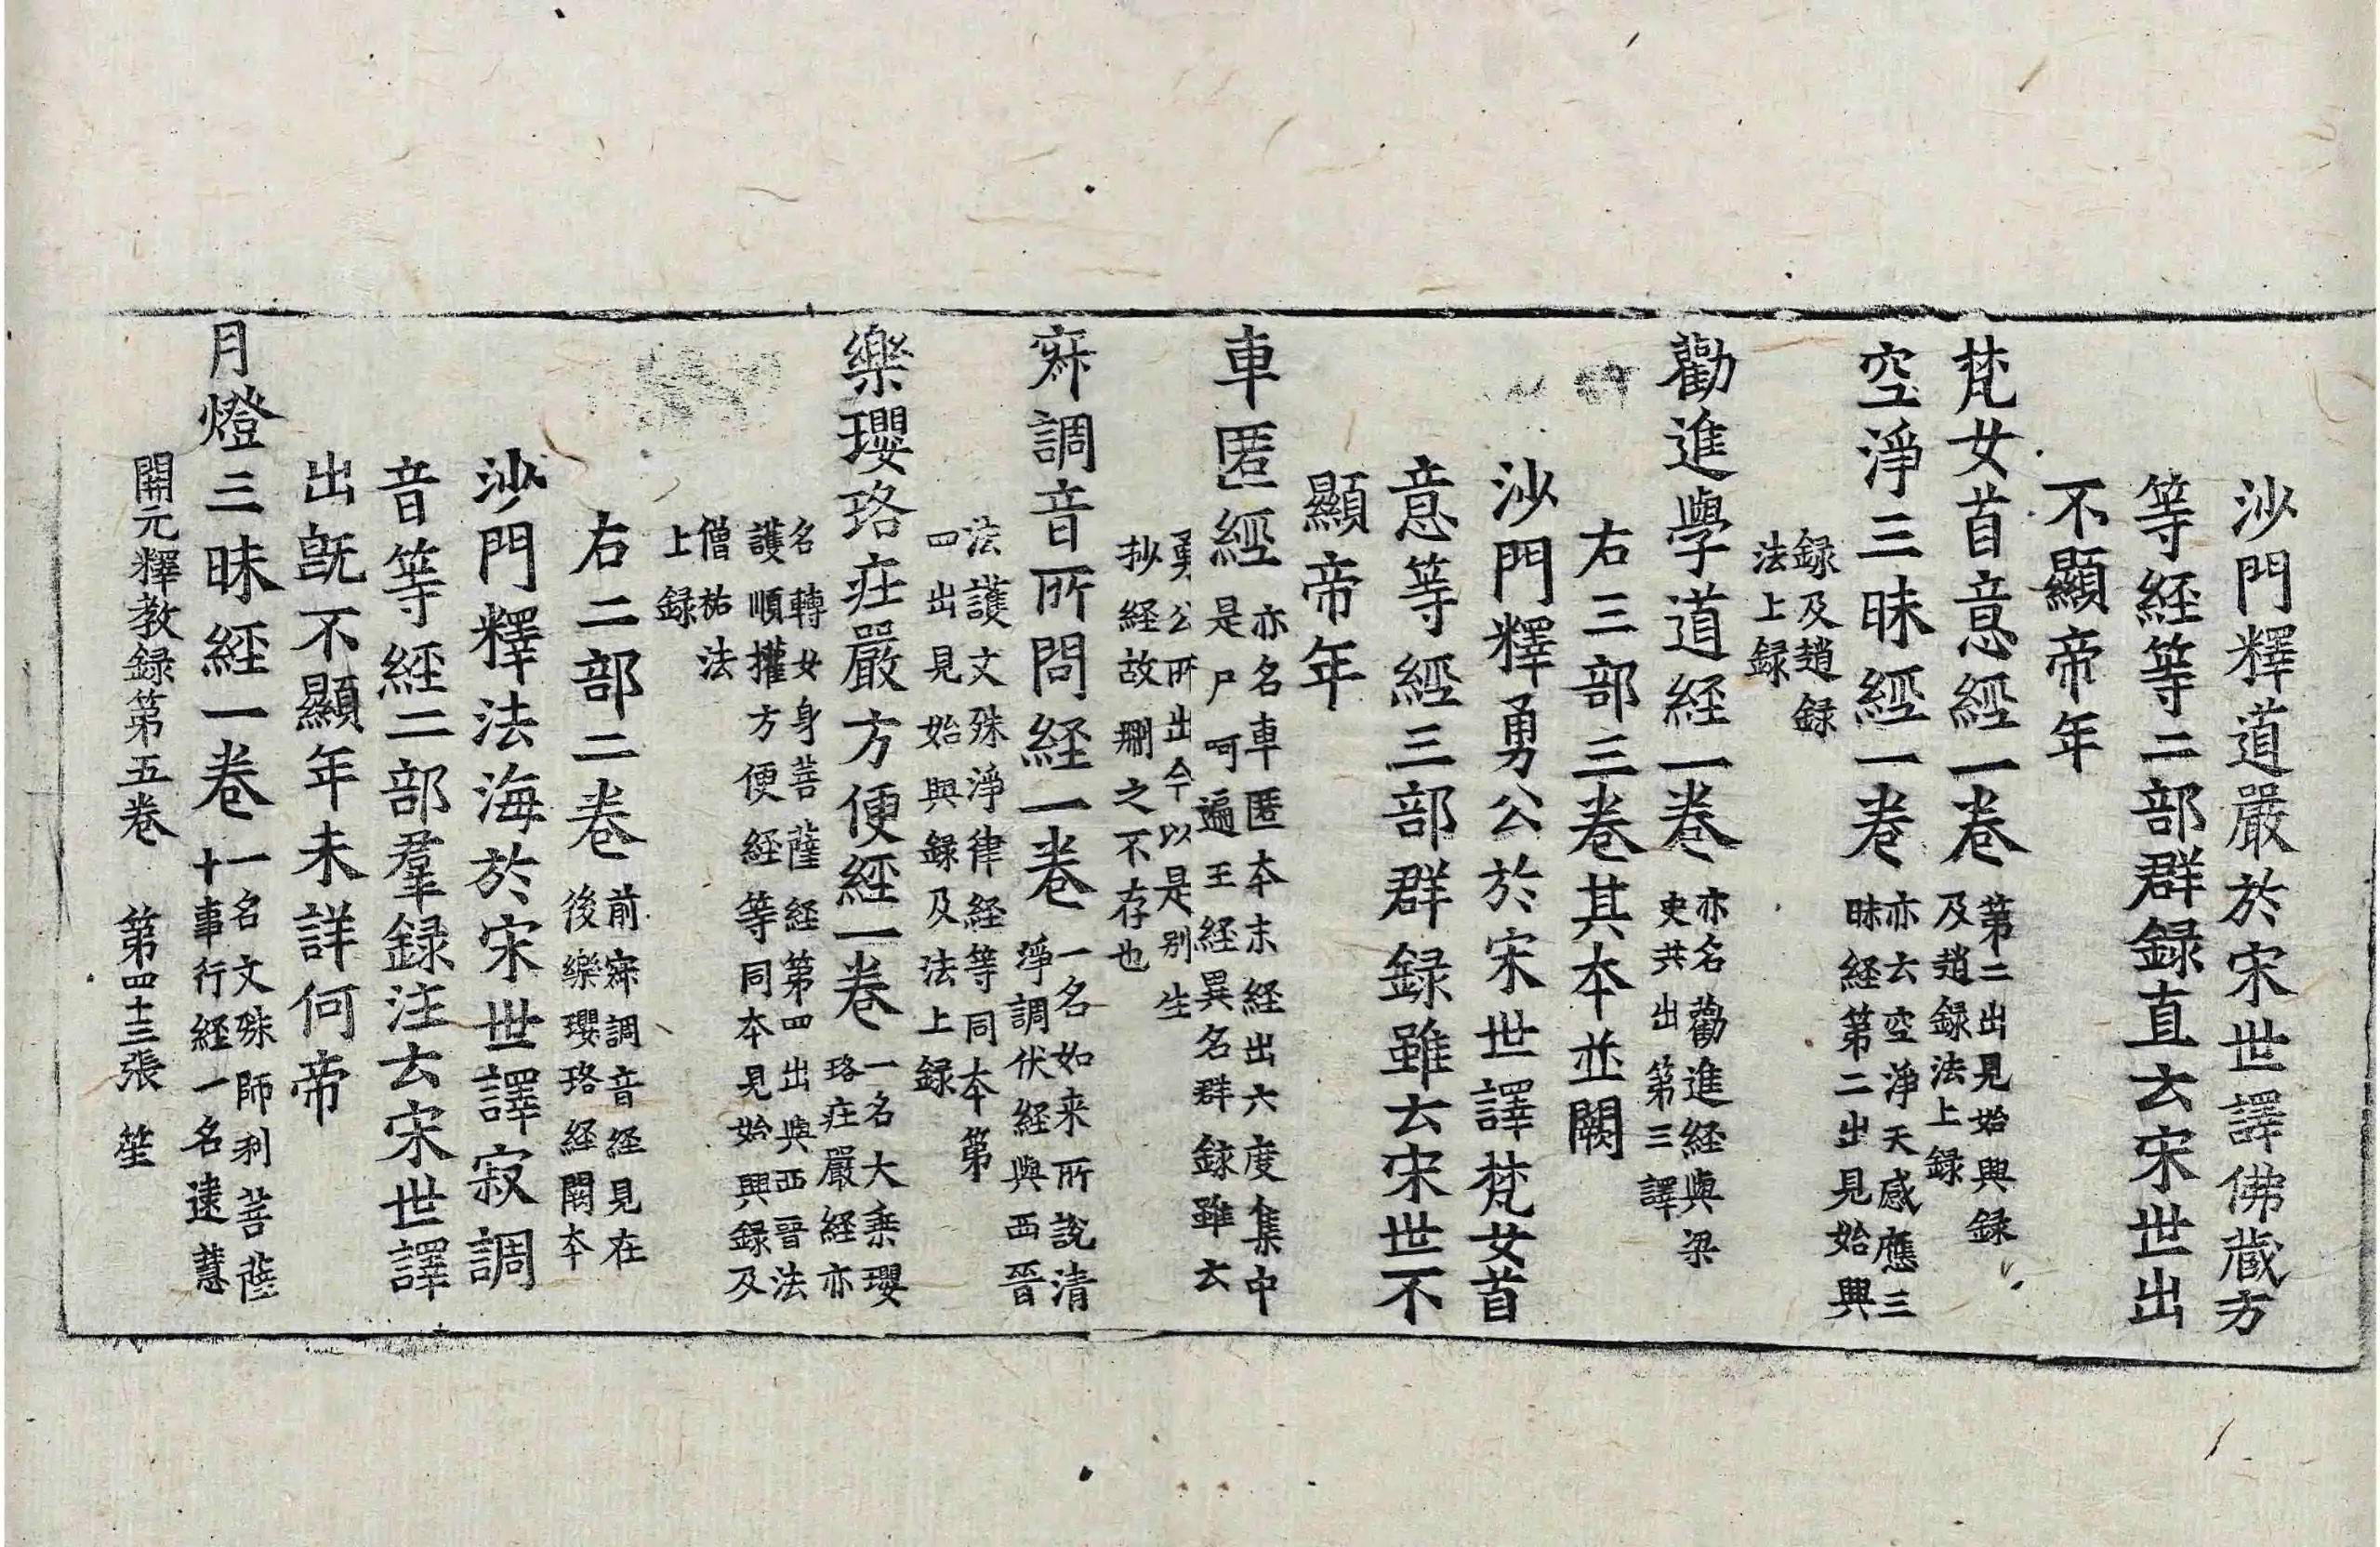 沙門釋道嚴於宋世譯佛藏方
等経等二部群録直云宋世出
不顯帝年
梵女首意經一卷
第二出見始興録
及趙録法上録
空淨三昧經一卷
亦云空淨天感應三
昧経第二出見始興
録及趙録
法上録
勸進學道経一卷
亦名勸進経與梁
史共出第三譯
右三部三卷其本並闕
沙門釋勇公於宋世譯梵女首
意等經三部群録雖云宋世不
顯帝年
車匿經
亦名車匿本末経出六度集中
是尸呵遍王経異名群録雖云
勇公所出今以是别生
抄経故刪之不存也
寂調音所問経一卷
一名如来所說清
淨調伏経與西晉
法護文殊淨律経等同本第
四出見始興録及法上録
樂瓔珞莊嚴方便經一卷
一名大乘瓔
珞莊嚴経亦
名轉女身菩薩経第四出與西晉法
護順權方便経等同本見始興録及
僧祐法
上録
右二部二卷
前寂調音経見在
後樂瓔珞経闕本
沙門釋法海於宋世譯寂調
音等経二部羣録注云宋世譯
出旣不顯年未詳何帝
月燈三昧經一卷
一名文殊師利菩薩
十事行経一名逮慧
開元釋教録第五卷 第四十三張 笙